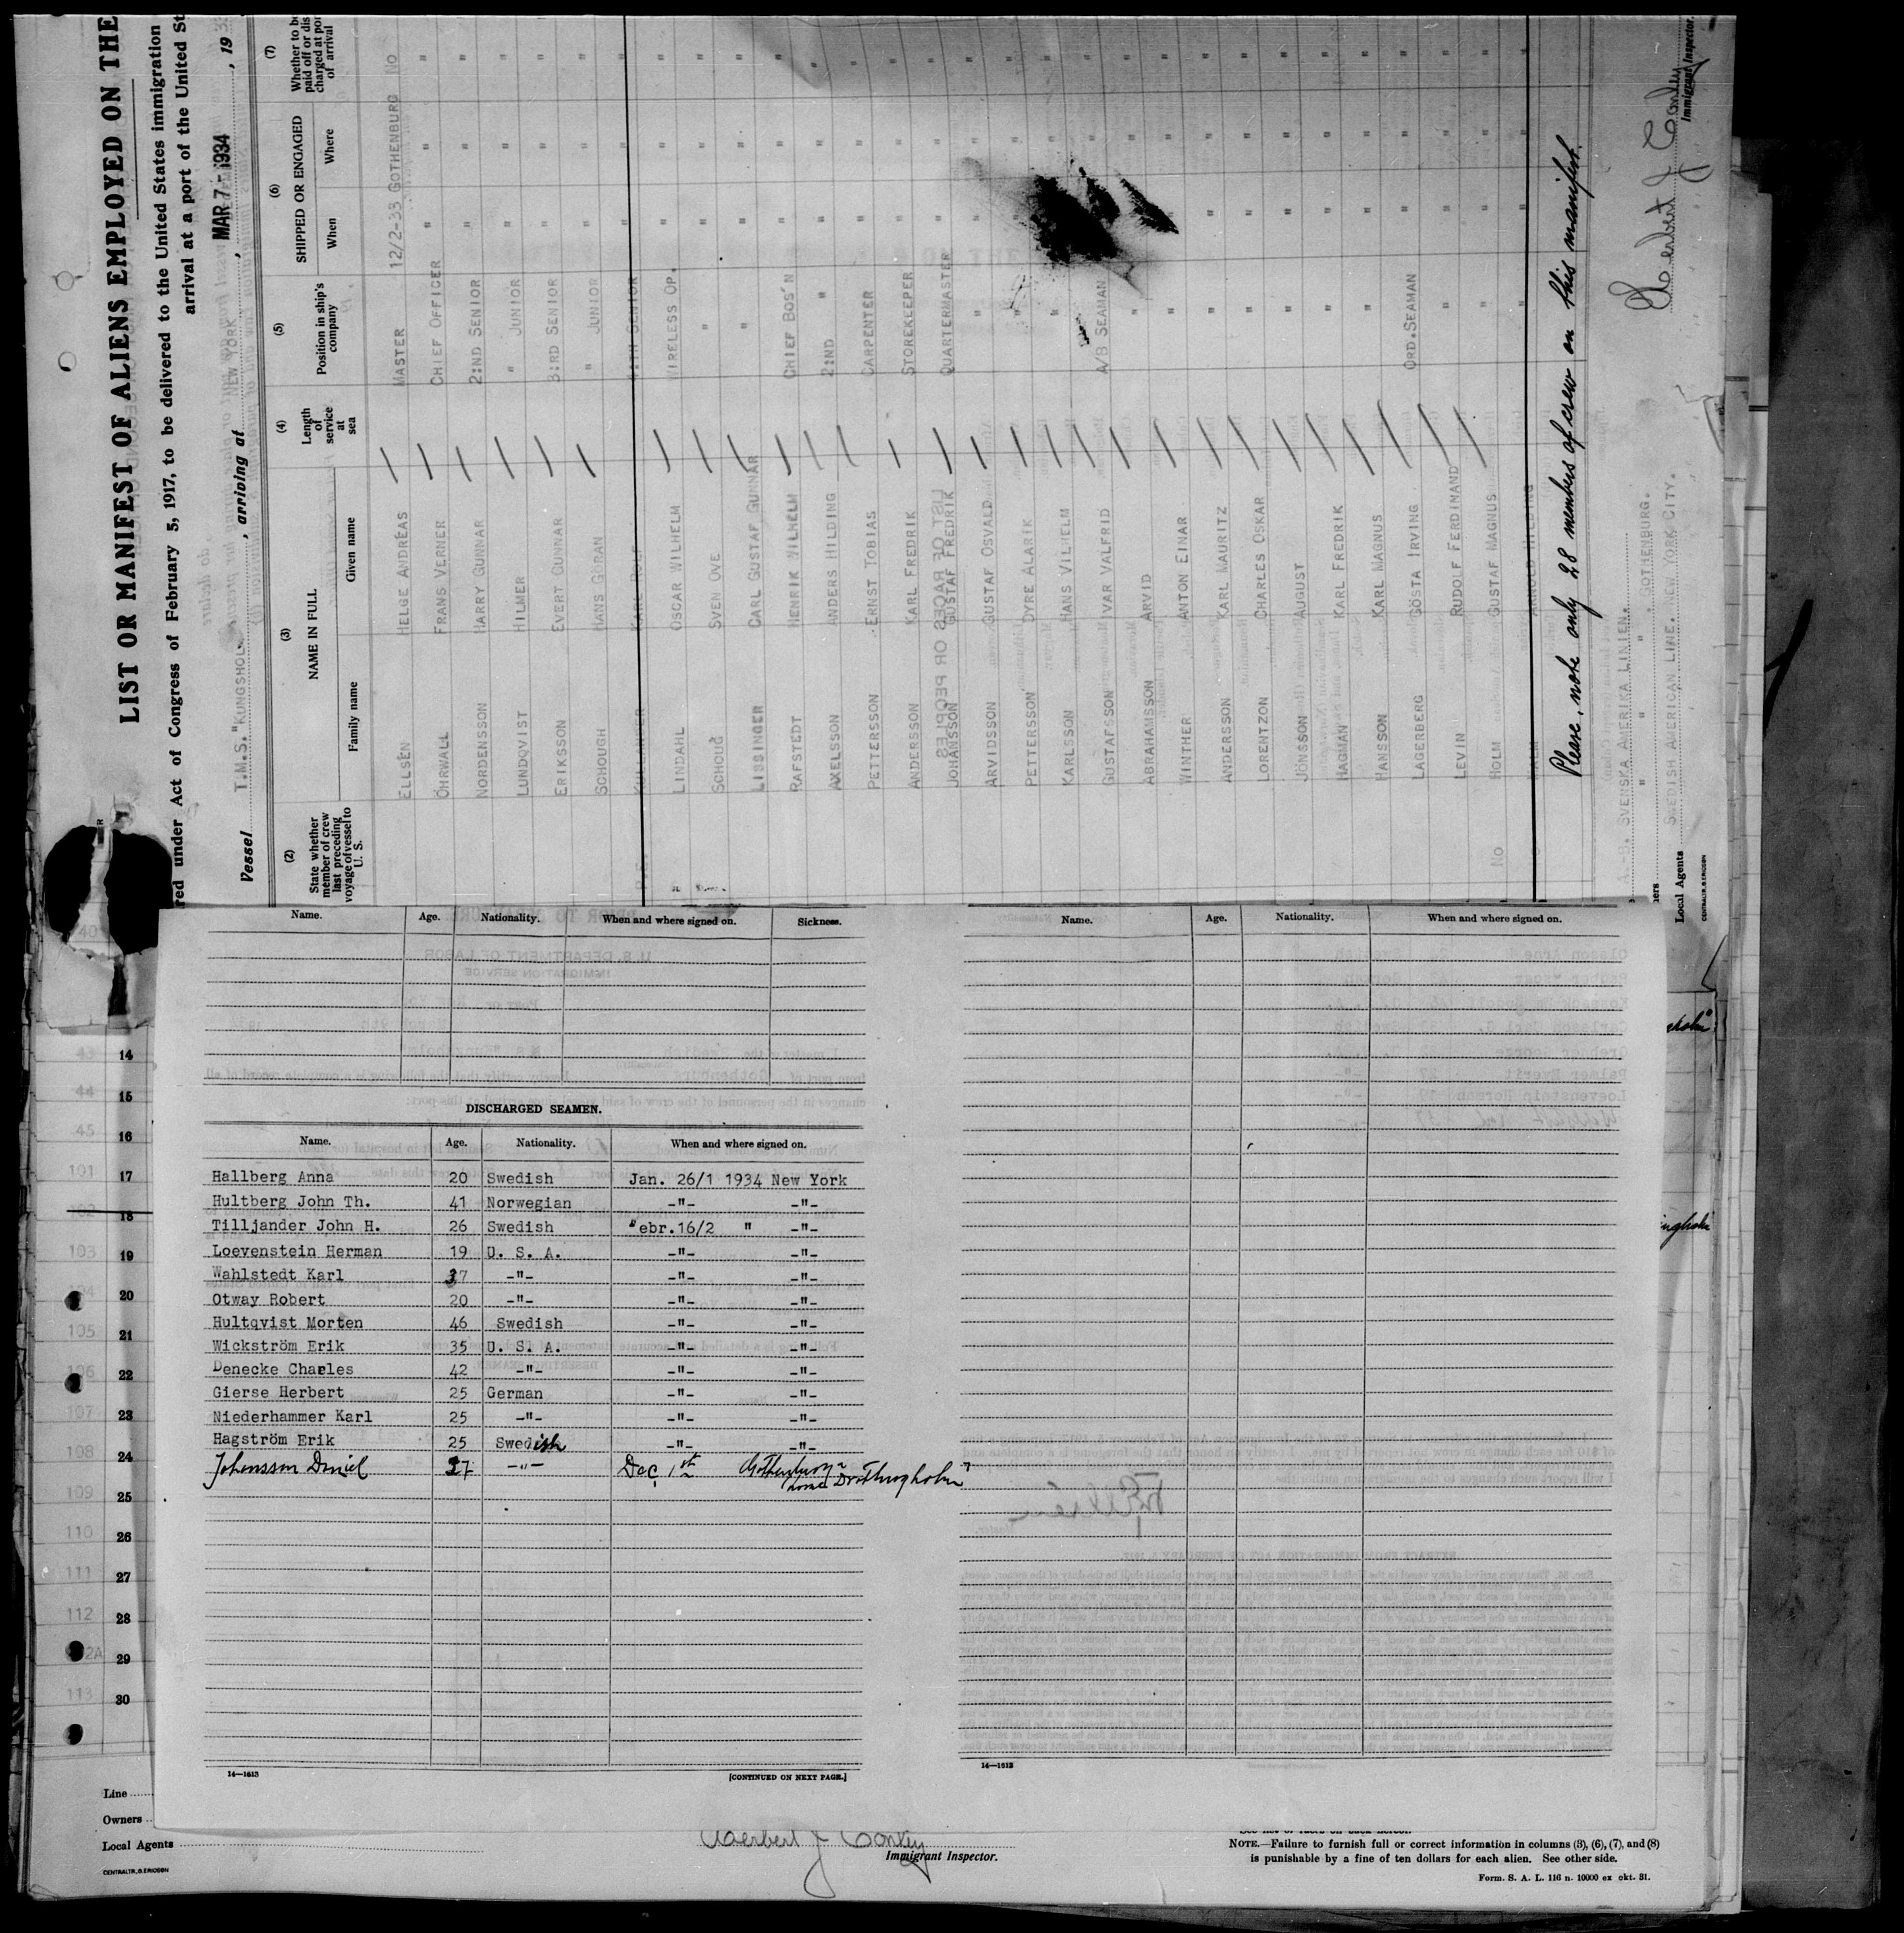 LIST OR MANIFEST OF ALIENS EMPLOYED ON THE
red under Act of Congress of February 5, 1917, to be delivered to the United States immigration
arrival at a port of the United St
Vessel T.M.S. "KUNGSHOLM", arriving at NEW YORK, MAR 7 - 1934, 19
(2) (3) (4) (5) (6) (7)
State whether member of crew last preceding voyage of vessel to U. S.
NAME IN FULL
Family name Given name
Length of service at sea
Position in ship's company
SHIPPED OR ENGAGED
When Where
Whether to be paid off or discharged at port of arrival
ELLSÉN HELGE ANDRÉAS MASTER 12/2-33 GOTHENBURG NO
ÖHRWALL FRANS VERNER CHIEF OFFICER " " "
NORDENSSON HARRY GUNNAR 2:ND SENIOR " " "
LUNDQVIST HILMER " JUNIOR " " "
ERIKSSON EVERT GUNNAR 3:RD SENIOR " " "
SCHOUGH HANS GÖRAN " JUNIOR " " "
KARL ROLF 4:TH SENIOR " " "
LINDAHL OSCAR WILHELM WIRELESS OP. " " "
SCHOUG SVEN OVE " " " "
LISSINGER CARL GUSTAF GUNNAR " " " "
RAFSTEDT HENRIK WILHELM CHIEF BOS'N " " "
AXELSSON ANDERS HILDING 2:ND " " " "
PETTERSSON ERNST TOBIAS CARPENTER " " "
ANDERSSON KARL FREDRIK STOREKEEPER " " "
JOHANSSON GUSTAF FREDRIK QUARTERMASTER " " "
ARVIDSSON GUSTAF OSVALD " " " "
PETTERSSON DYRE ALARIK " " " "
KARLSSON HANS VILHELM " "
GUSTAFSSON IVAR VALFRID A/B SEAMAN "
ABRAHAMSSON ARVID " "
WINTHER ANTON EINAR " " " "
ANDERSSON KARL MAURITZ " " " "
LORENTZON CHARLES OSKAR " " " "
JONSSON AUGUST " " " "
HAGMAN KARL FREDRIK " " " "
HANSSON KARL MAGNUS " " " "
LAGERBERG GÖSTA IRVING ORD.SEAMAN " " "
LEVIN RUDOLF FERDINAND " " " "
NO HOLM GUSTAF MAGNUS " " " "
ARNOLD HILDING " " " "
Please, note only 28 members of crew on this manifest.
A-B. SVENSKA AMERIKA LINIEN.
" " " GOTHENBURG.
Local Agents SWEDISH AMERICAN LINE. NEW YORK CITY.
Herbert J Conley
Immigrant Inspector.
CENTRALTR., G. ERICSON
Name. Age. Nationality. When and where signed on. Sickness.
Name. Age. Nationality. When and where signed on.
DISCHARGED SEAMEN.
Name. Age. Nationality. When and where signed on.
Hallberg Anna 20 Swedish Jan. 26/1 1934 New York
Hultberg John Th. 41 Norwegian -"- -"-
Tilljander John H. 26 Swedish Febr.16/2 " -"-
Loevenstein Herman 19 U. S. A. -"- -"-
Wahlstedt Karl 37 -"- -"- -"-
Otway Robert 20 -"- -"- -"-
Hultqvist Morten 46 Swedish -"- -"-
Wickström Erik 35 U. S. A. -"- -"-
Denecke Charles 42 -"- -"- -"-
Gierse Herbert 25 German -"- -"-
Niederhammer Karl 25 -"- -"- -"-
Hagström Erik 25 Swedish -"- -"-
Johansson Daniel 27 -"- Dec. 1st Gothenburg Drottningholm"
14—1613 [CONTINUED ON NEXT PAGE.]
14—1613
14
15
16
17
18
19
20
21
22
23
24
25
26
27
28
29
30
43
44
45
101
103
105
106
107
108
109
110
111
112
113
Line
Owners
Local Agents
CENTRALTR., G. ERICSON
Herbert J Conley
Immigrant Inspector.
NOTE.—Failure to furnish full or correct information in columns (3), (6), (7), and (8)
is punishable by a fine of ten dollars for each alien. See other side.
Form. S. A. L. 116 n. 10000 ex okt. 31.